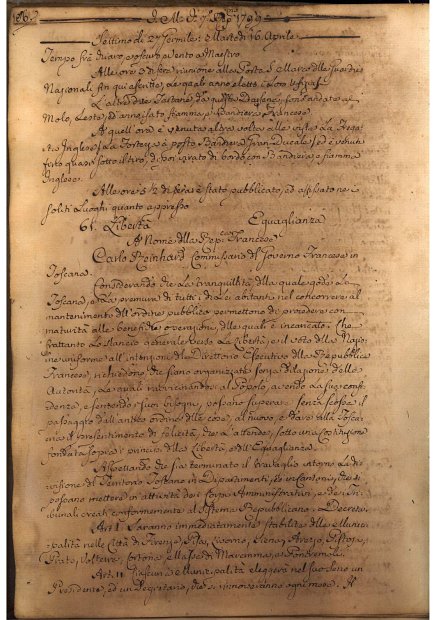 1799
Settimo di 27 Germile: Martedì 16 Aprile
Tempo frà Chiaro, e oscuro, e Vento a Maestro
Alle ore 3 di sera riunione alla Posta S. Marco delle Guardie
Nazionali fin qui esistite, le quali anno eletti i loro
L'altre due Tartane, da questa Darsena, son andate a
Molo, e anno issato fiamma, e Bandiera Francese
A quell'ora è venuta altra volta alla vista la Frega-
ta Inglese; La Fortezza à posto Bandiera Gran Ducale, ed è venuta
sotto il tiro, di poi virato di bordo con Bandiera, e fiamma
Inglese
Alle ore 5 1/2 di sera è stato pubblicato, ed affissato ne i
soliti Luoghi quanto appresso
61. Libertà Eguaglianza
A Nome della Rep.ca Francese
Carlo Reinhard Commissario del Governo Francese in
Toscana
Considerando che la tranquillità della quale gode la
Toscana, e le premure di tutti i di Lei abitanti nel concorrere al
mantenimento dell'ordine pubblico permettono di procedere con
maturità alle benefiche operazioni, delle quali è incaricato: Che
frattanto lo slancio generale verso la Libertà, e il voto della Nazio-
ne uniforme all'intenzione del Direttorio Esecutivo della Repubblica
Francese, richiedono che siano organizzate senza dilazione delle
Autorità, le quali avvicinandosi al Popolo, avendo la sua confi-
denza, e sentendo i suoi bisogni, possano superare senza scosse il
passaggio dall'antico ordine delle cose, al nuovo, e dare alla Tosca-
na il presentimento di felicità, che l'attende, sotto una Costituzione
fondata sopra i principi della Libertà, e dell'Eguaglianza.
Aspettando che sia terminato il travaglio intorno la di-
visione del Territorio Toscano in Dipartimenti, ed in Cantoni, e che si
possano mettere in attività dei Corpi Amministrativi, e dei Tri-
bunali creati conformemente al Sistema Repubblicano, Decreta
Art. I. Saranno immediatamente stabilite delle Munici-
palità nelle Città di Firenze, Pisa, Livorno, Siena, Arezzo, Pistoja,
Prato, Volterra, Cortona, e Massa di Maremma, e Pontremoli.
Art. II. Ciascuna Municipalità eleggerà nel suo seno un
Presidente, ed un Segretario, che si rinnoveranno ogni mese. Il